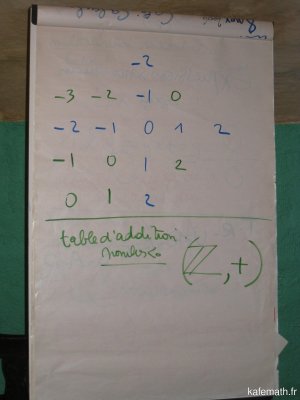 -2
-3 -2 -1 0
-2 -1 0 1 2
-1 0 1 2
0 1 2
table d'addition
nombres<0
(ℤ,+)
kafemath.fr